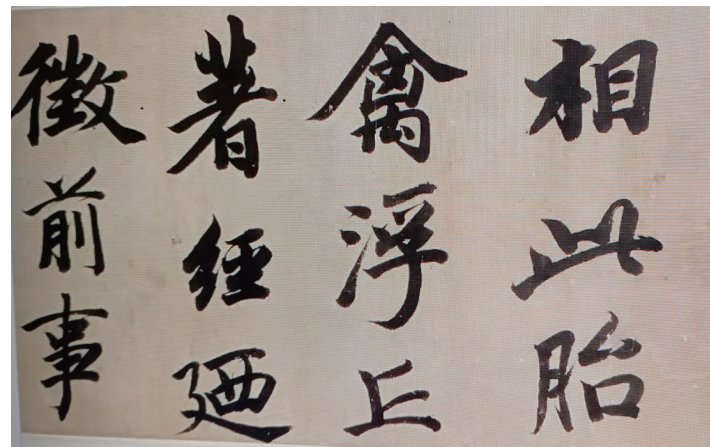 相此胎
禽浮丘
著經廼
徵前事